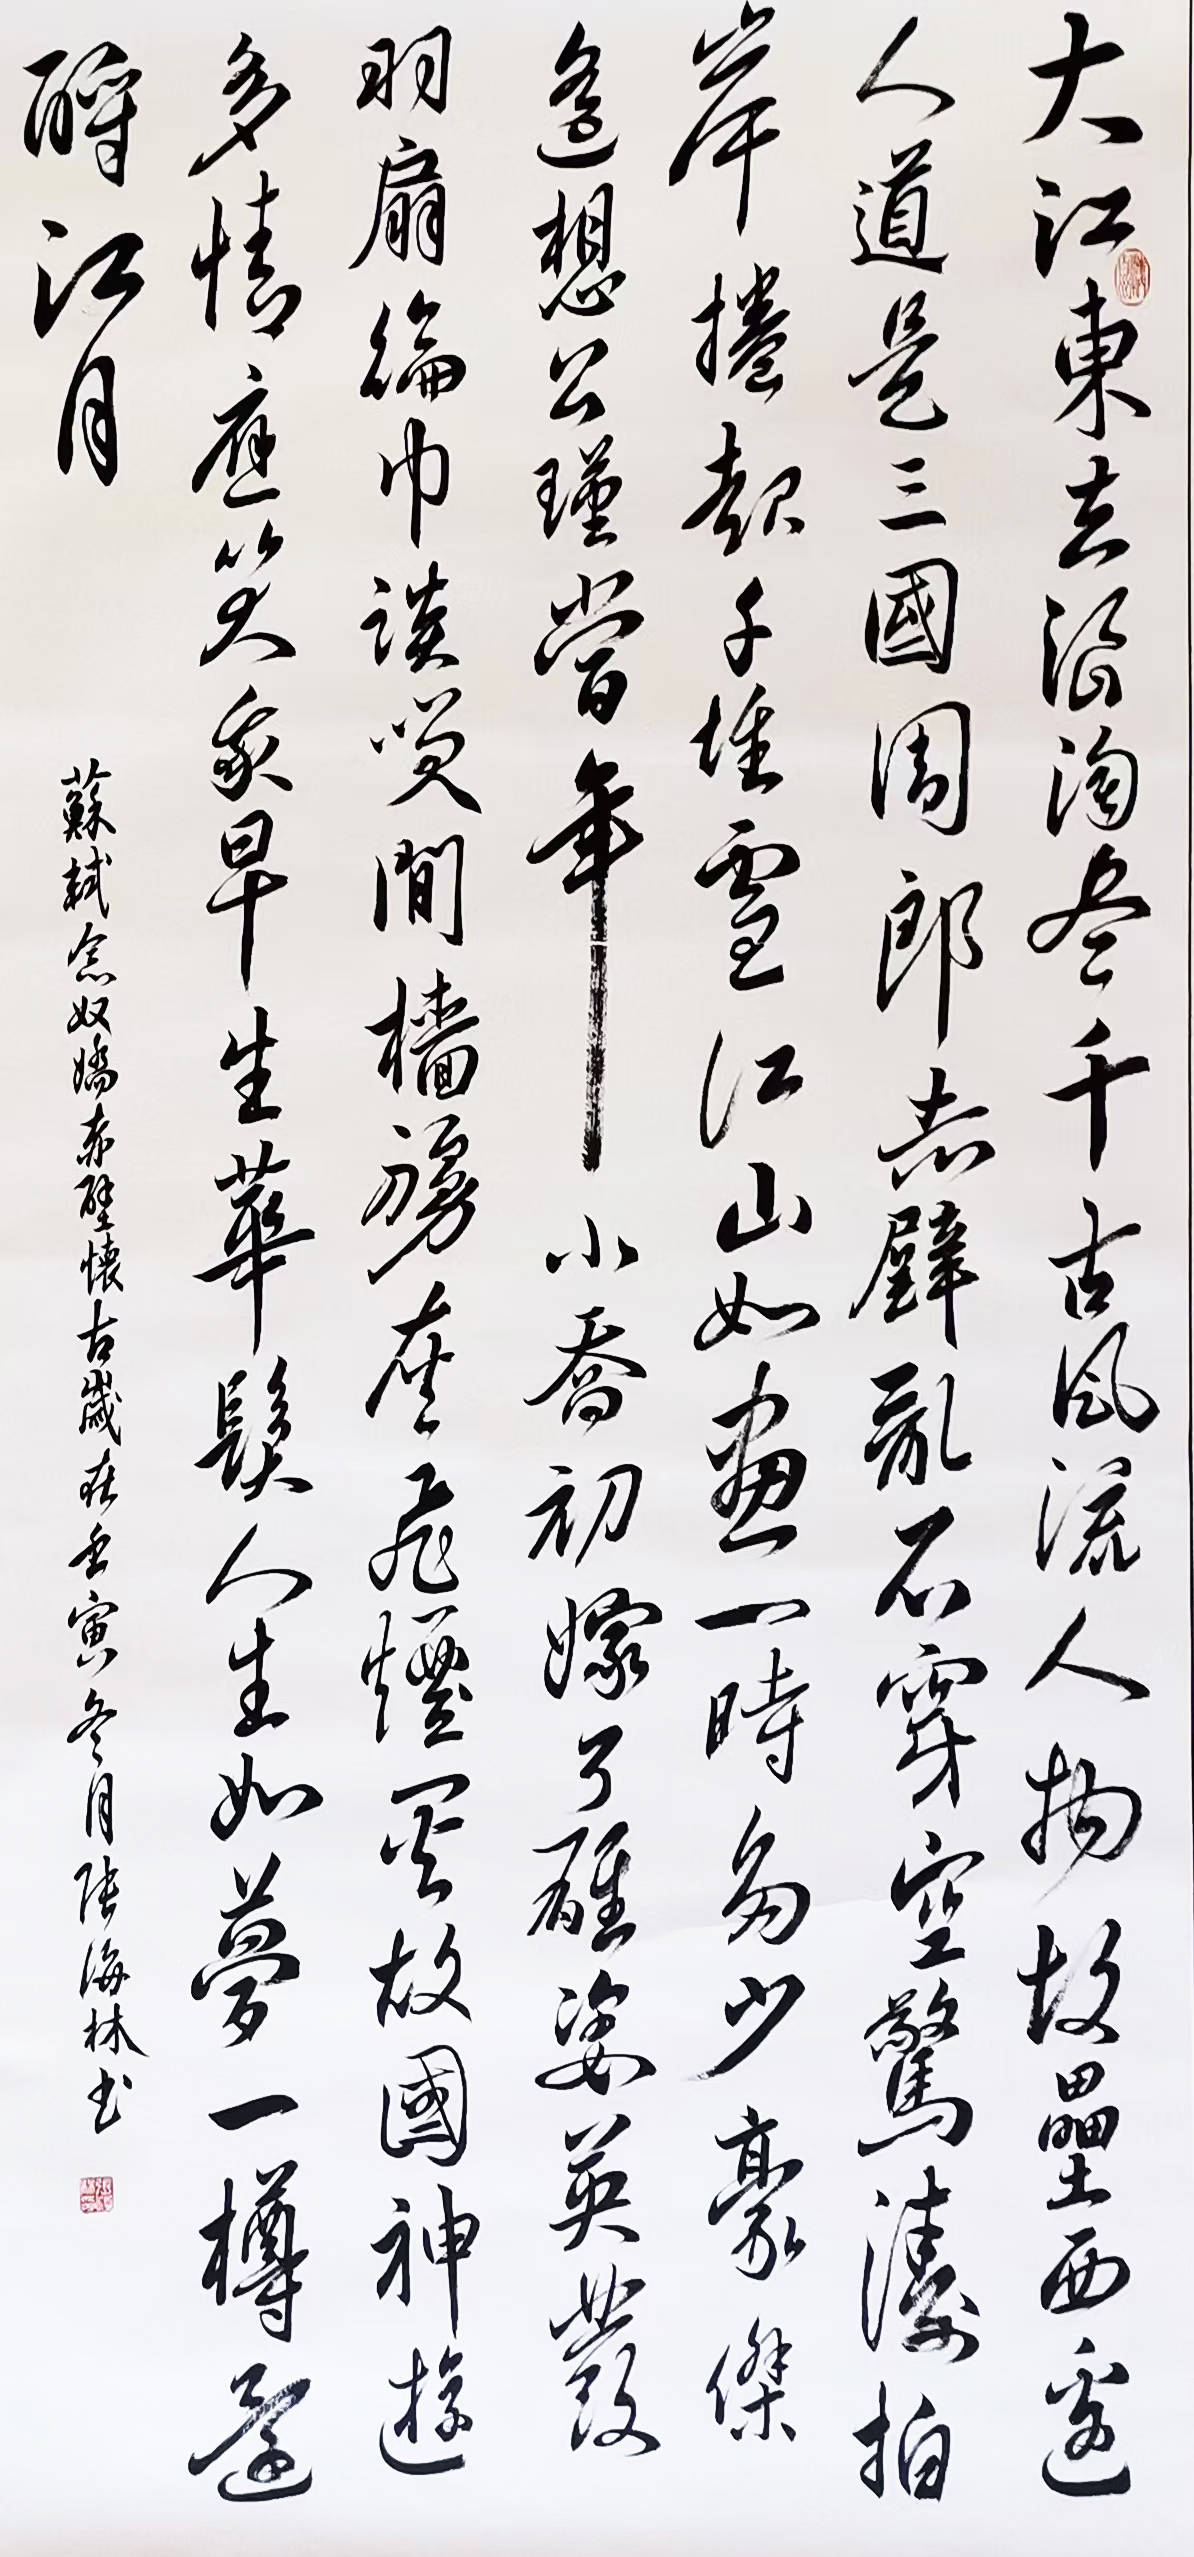 大江東去浪淘尽千古風流人物故壘西邊
人道是三國周郎赤壁亂石穿空驚濤拍
岸捲起千堆雪江山如畫一時多少豪傑
遙想公瑾當年小喬初嫁了雄姿英發
羽扇綸巾談笑間檣櫓灰飛煙滅故國神遊
多情應笑我早生華髮人生如夢一樽還
酹江月
蘇軾念奴嬌赤壁懷古歲在壬寅冬月張海林书